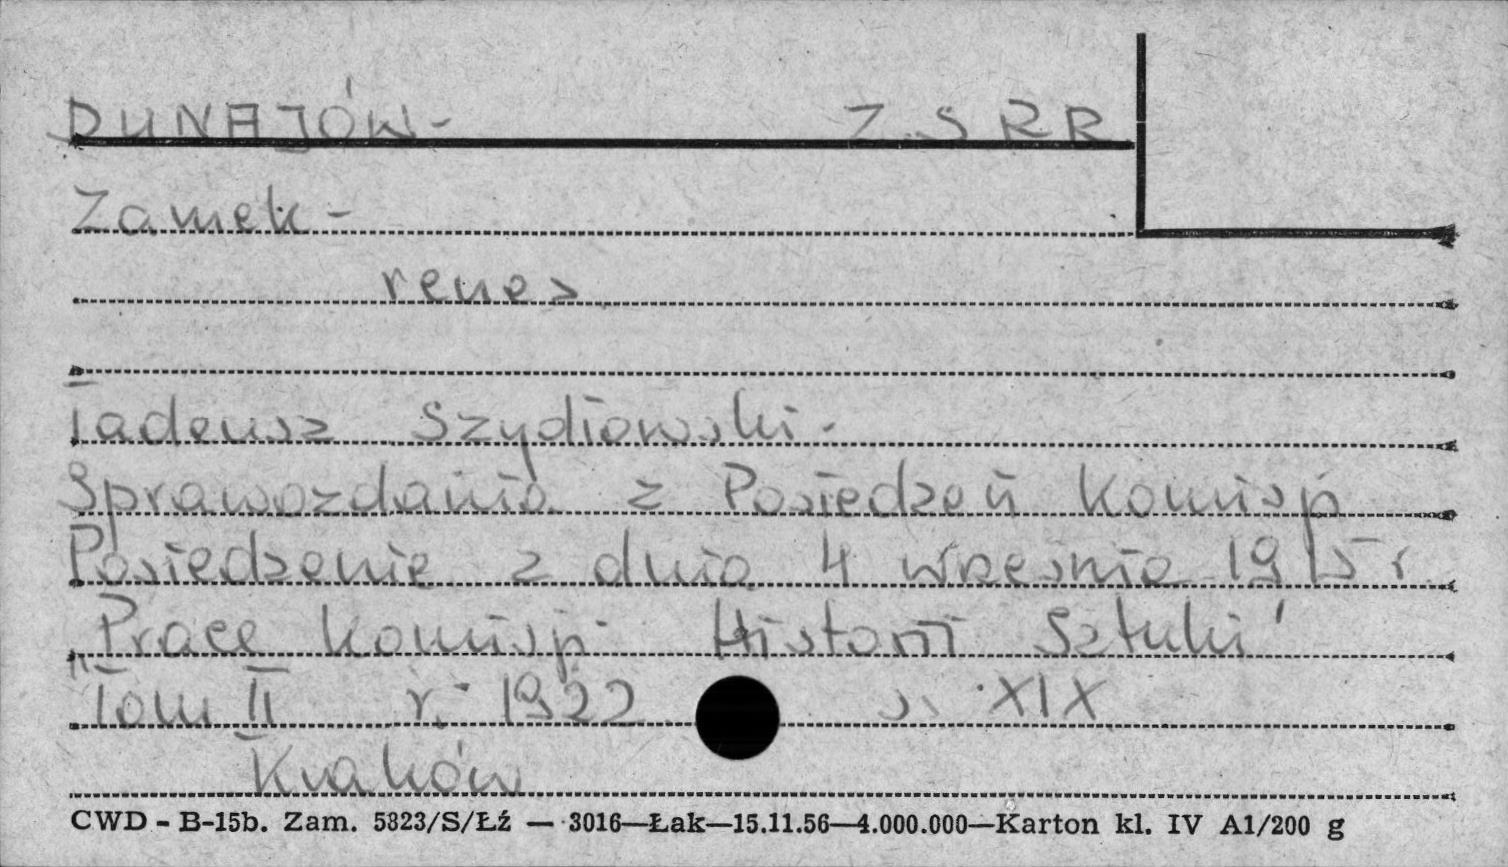 DUNAJÓW - Z.S.R.R.
Zamek -
renes.
Tadeusz Szydłowski -
Sprawozdania z Posiedzeń Komisji
Posiedzenie z dnia 4 września 1915 r.
"Prace Komisji Historii Sztuki"
Tom II r. 1922 s. XIX
Kraków
CWD - B-15b. Zam. 5823/S/Łź — 3016—Łak—15.11.56—4.000.000—Karton kl. IV A1/200 g